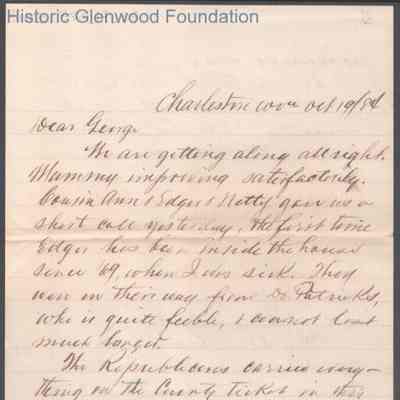 Historic Glenwood Foundation
Charleston W Va Oct 19/84
Dear George
We are getting along all right.
Mammy improving satisfactorily.
Cousin Ann & Edgar & Netty gave us a
short call yesterday, the first time
Edgar has been inside the house
since '69, when I was sick. They
were on their way from Dr Patricks,
who is quite feeble, & cannot last
much longer.
The Republicans carried every-
thing on the County ticket in